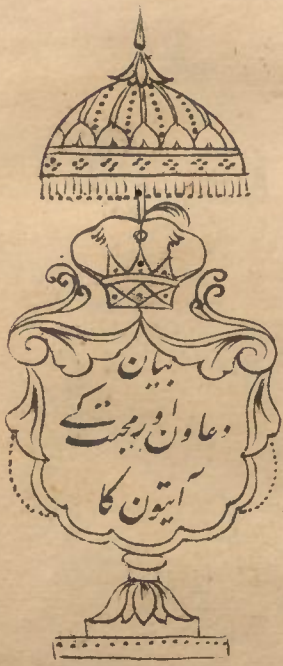 بیان
دعاون اور محبت کے
آیتون کا